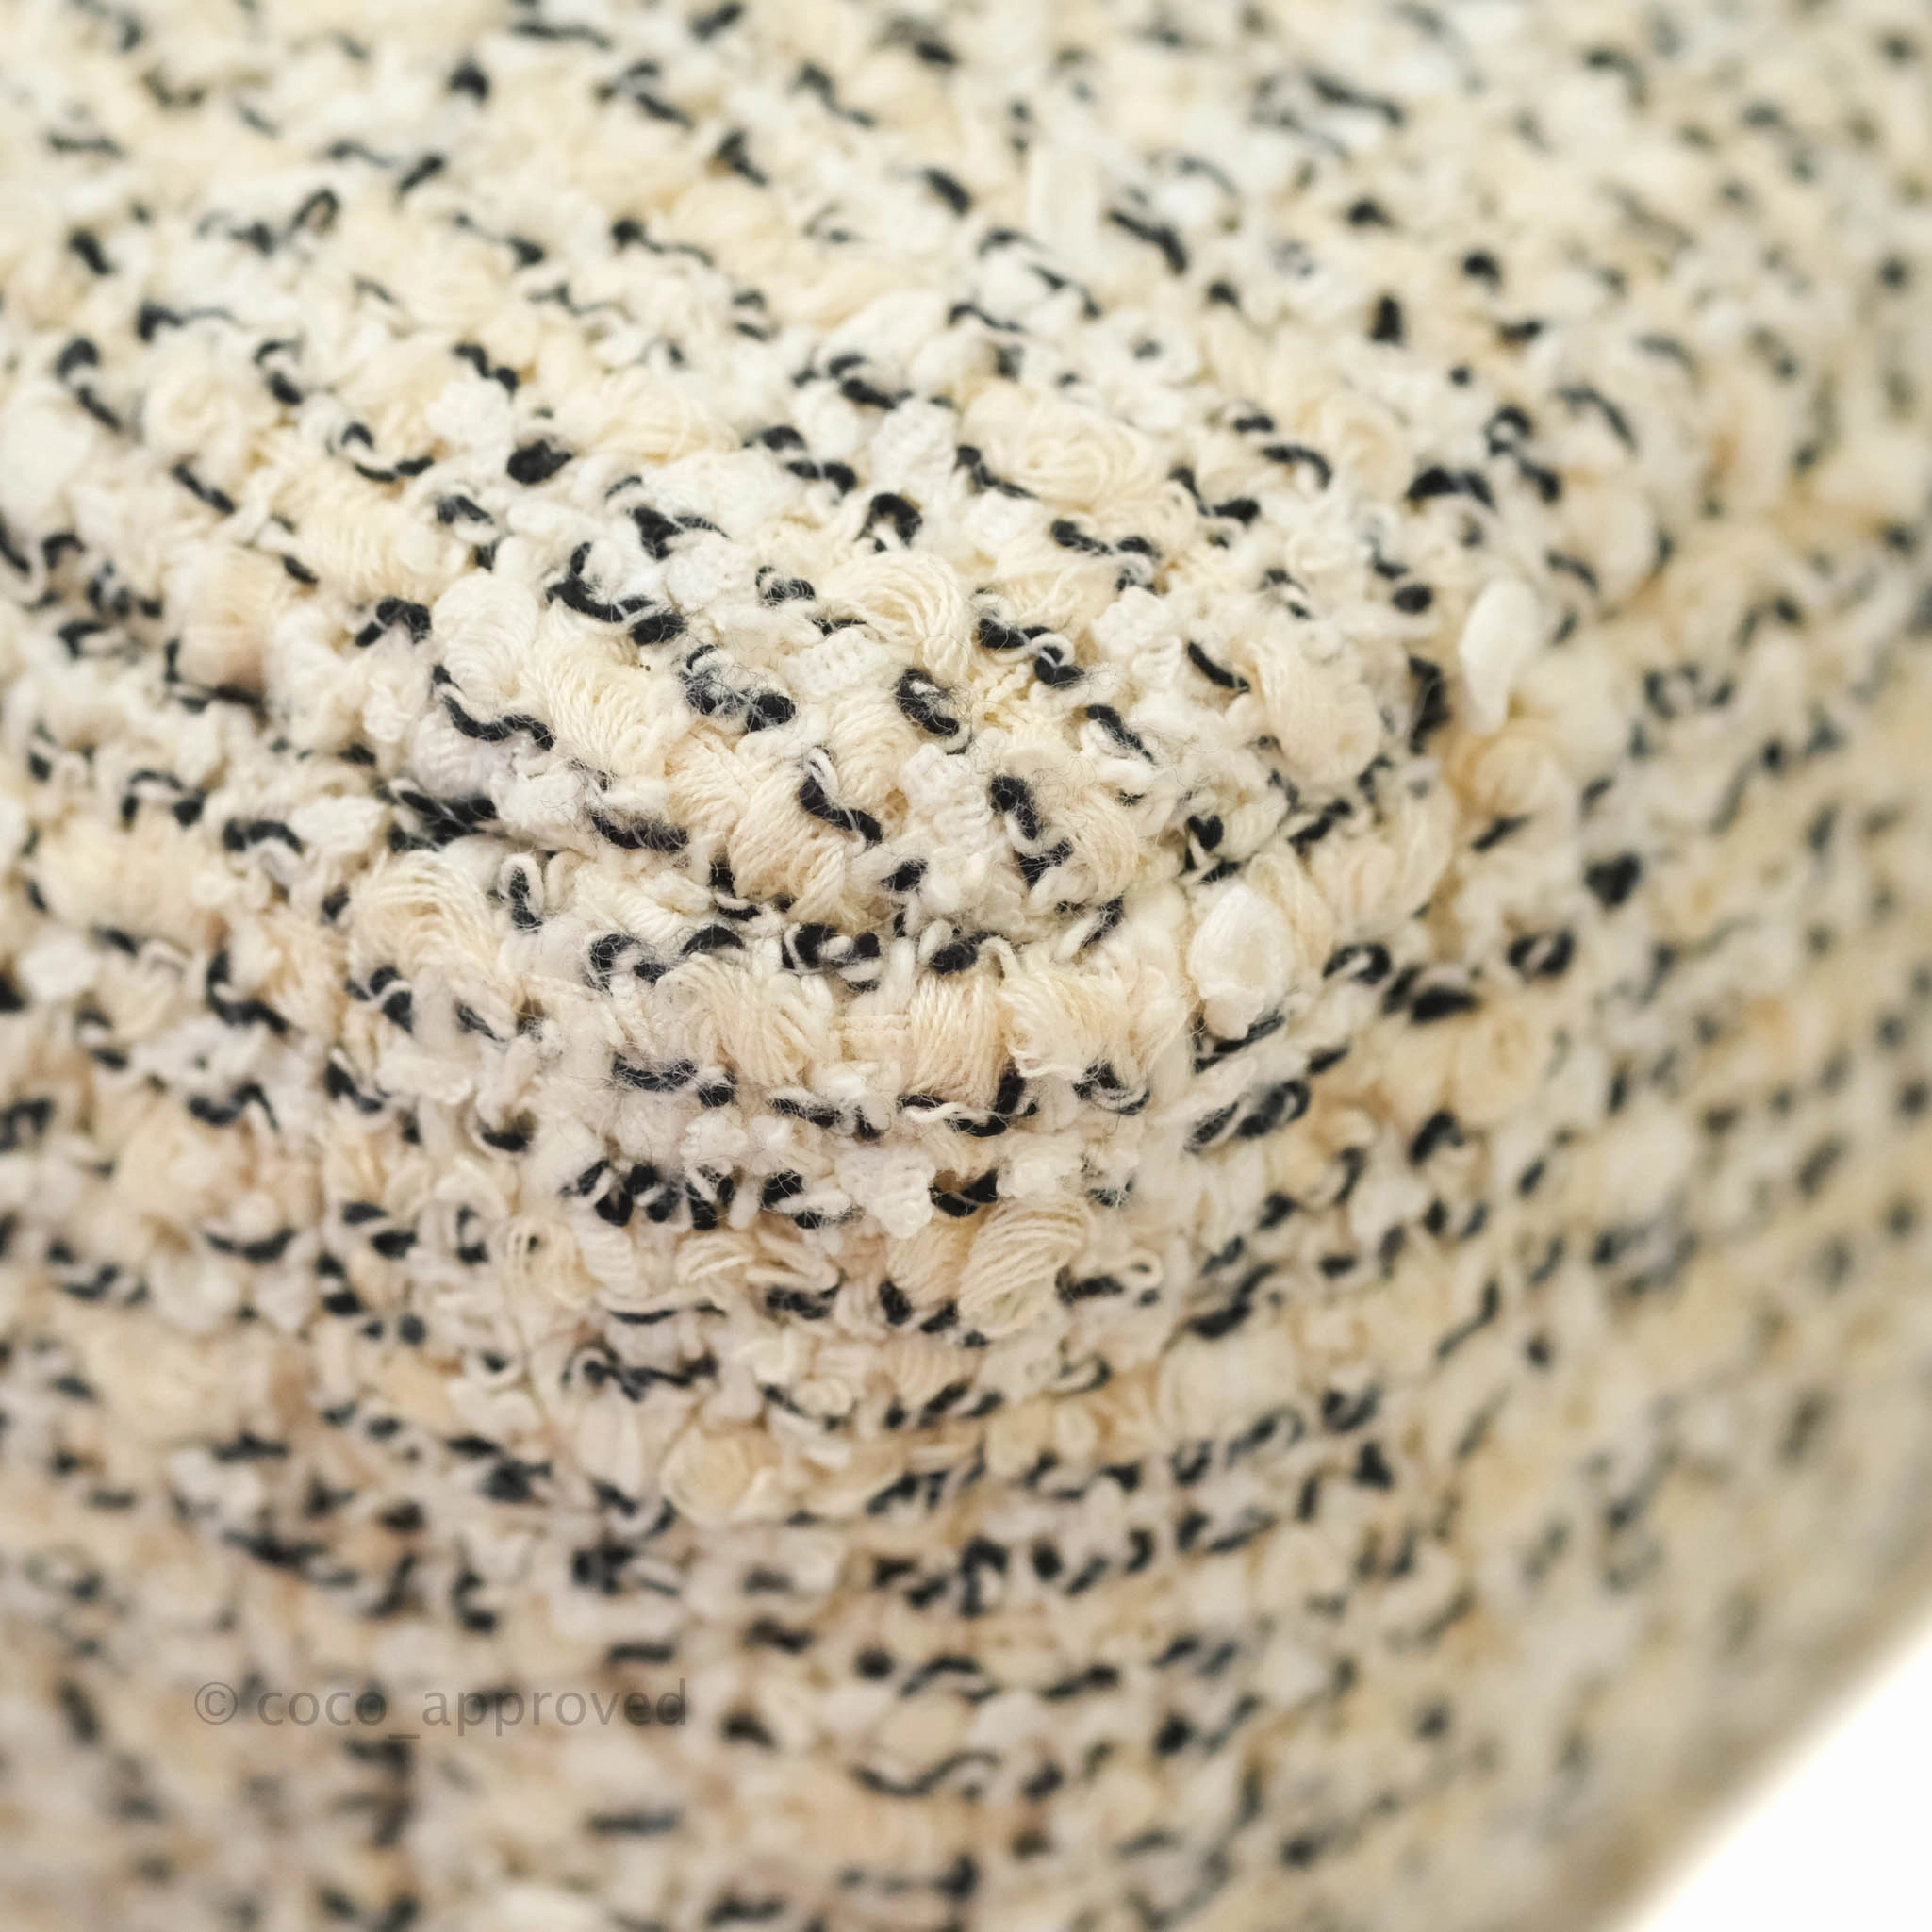 © coco_approved